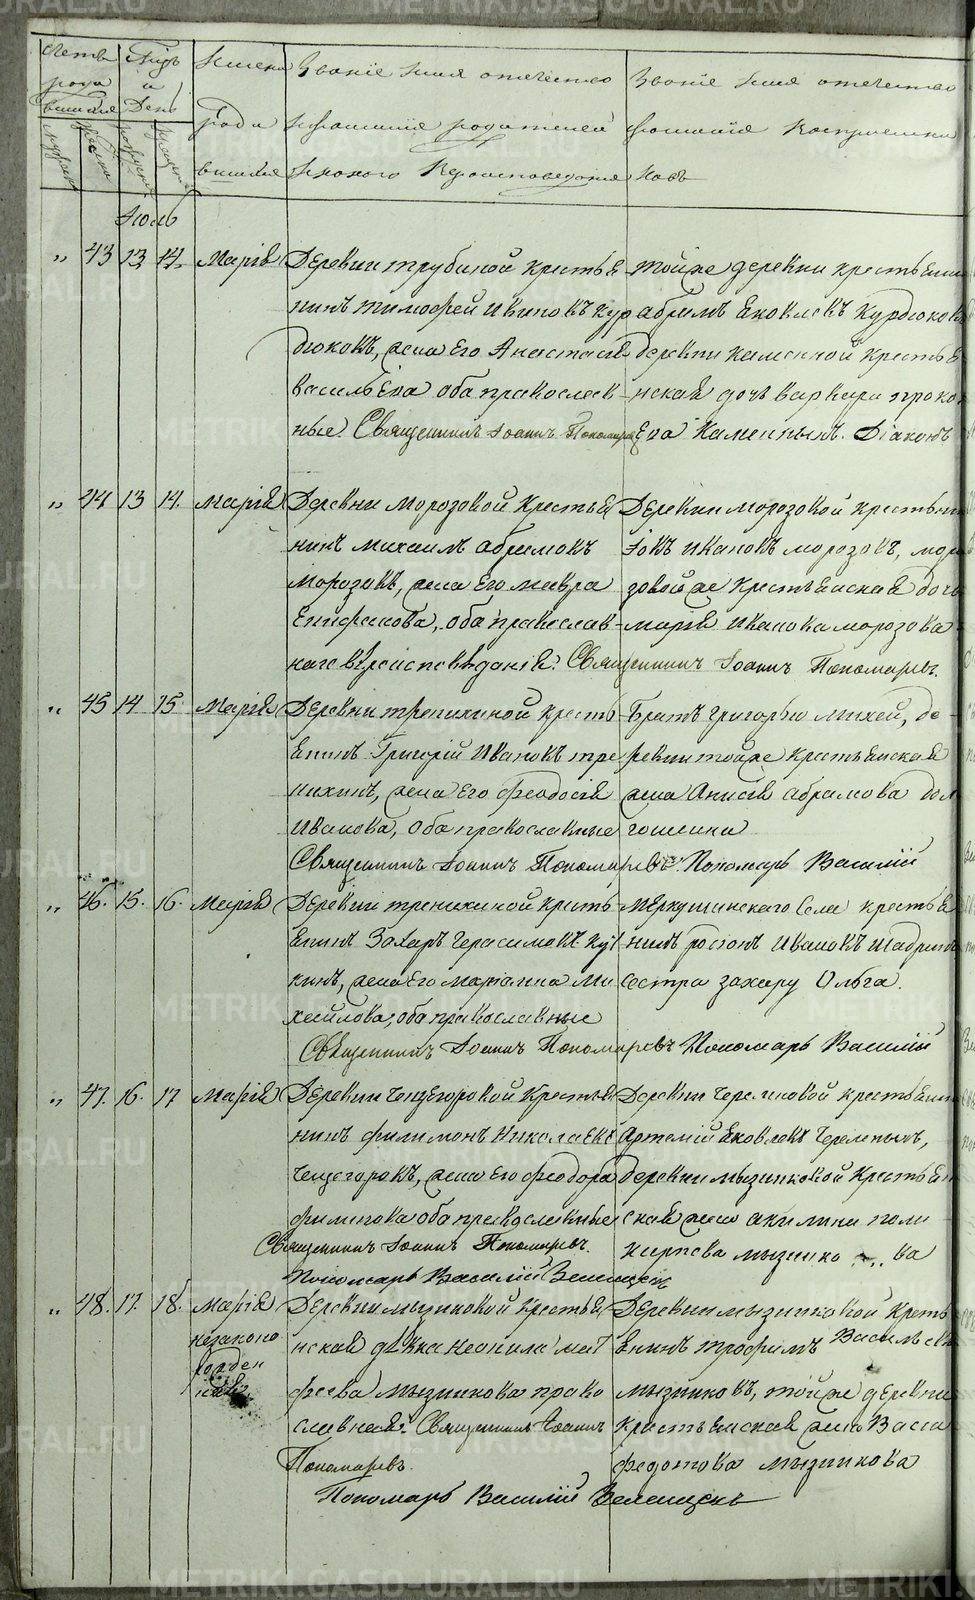 Счетъ
рода
вшихся
Мужеска
Женска
Мѣсяцъ
и
День
рожденія
крещенія
Имена
роди
вшихся
Званіе имя отечество
и фамилія родителей
и какого вѣроисповеданія
Званіе имя отечество
фамилія воспріемни
ковъ
Іюль
" 43 13 14. Марія
Деревни Трубиной крестья
нинъ Тимофей Ивановъ Кур
дюковъ, жена Его Анастасія
Васильева оба православ-
ные. Священникъ Іоаннъ Пономаревъ
тойже деревни крестьянинъ
Абрамъ Яковлевъ Курдюковъ
деревни Каменной Крестья
нская дочь Варвара Проко
Ева Каменныхъ. Діаконъ
" 44 13 14. Марія
Деревни Морозовой Крестья
нинъ Михаилъ Абрамовъ
Морозовъ, жена Его Мавра
Епифанова, оба православ-
наго вѣроисповѣданія. Священникъ Іоаннъ Пономаревъ.
Деревни Морозовой крестьянинъ
Іовъ Ивановъ Морозовъ, Моро
зовой же Крестьянская дочь
Марія Иванова Морозова
" 45 14 15. Марія
Деревни Трепихиной Кресть
янинъ Григорій Ивановъ Тре
пихинъ, жена Его Феодосія
Иванова, оба православные
Братъ Григорью Михей, де
ревни тойже Крестьянская
жена Анисія Абрамова Дол
гошеина
Священникъ Іоаннъ Пономаревъ. Пономарь Василій
" 46. 15. 16. Марія
Деревни Трепихиной Кресть
янинъ Захаръ Герасимовъ
кинъ, жена Его Маріанна Ми
хайлова, оба православные
Меркушинскаго Села крестья
нинъ Иванъ Шадринъ
сестра Захару Ольга.
Священникъ Іоаннъ Пономаревъ Пономарь Василій
" 47. 16. 17 Марія
Деревни Чещегоровой Крестья
нинъ Филимонъ Николаевъ
Чещегоровъ, жена Его Феодора
Филипова оба православные
Священникъ Іоаннъ Пономаревъ.
Пономарь Василій
Деревни Черемновой крестьянинъ
Артемій Яковлевъ Черемныхъ,
деревни Мызниковой Крестьян
ская жена Акилина Поли
карпова Мызнико ва
" 48. 17. 18. Марія
незаконо
рожден
ная
Деревни Мызниковой Крестья
нская дѣвка Неонила Мат
феева Мызникова право
славная. Священникъ Іоаннъ
Пономаревъ.
Пономарь Василій
Деревни Мызниковой Кресть
янинъ Трофимъ Васильевъ
Мызниковъ, тойже деревни
Крестьянская жена Васса
Федотова Мызникова
METRIKI.GASO-URAL.RU